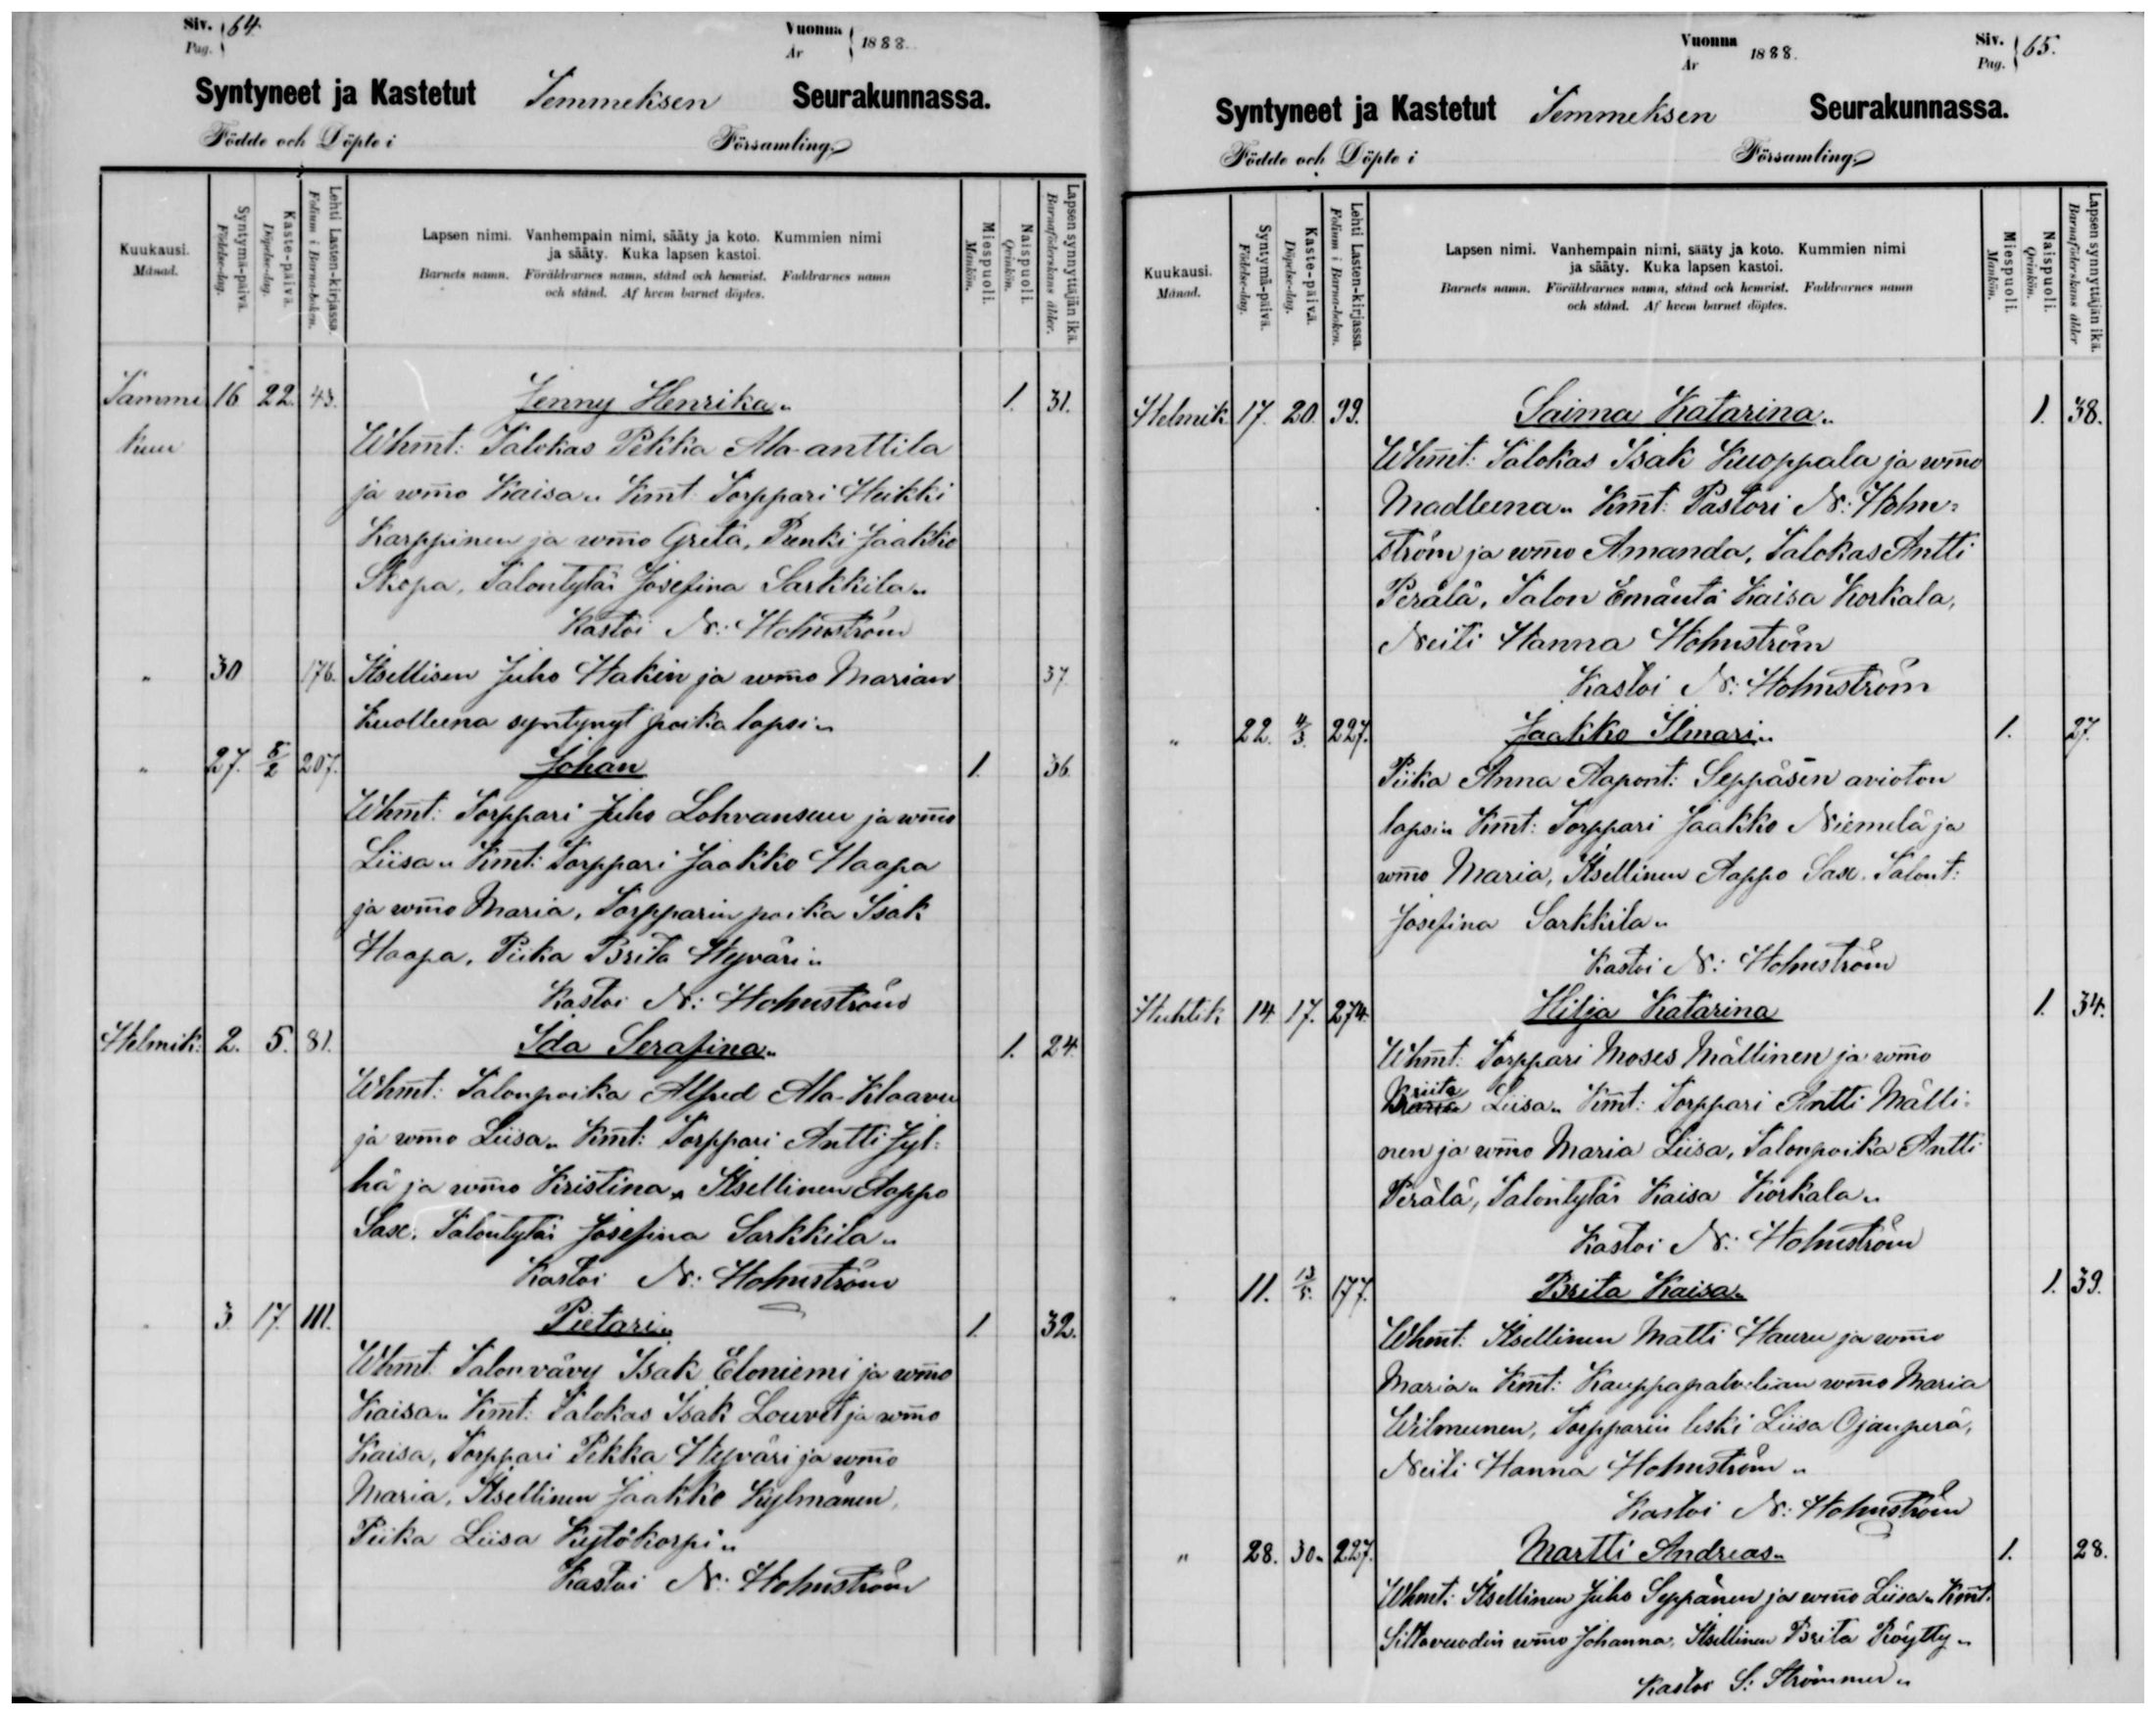 Siv. 64.
Pag.
Vuonna 1888.
År
Syntyneet ja Kastetut Temmeksen Seurakunnassa.
Födde och Döpte i Församling.
Kuukausi.
Månad.
Syntymä-päivä.
Födelse-dag.
Kaste-päivä.
Döpelse-dag.
Lehti Lasten-kirjassa.
Folium i Barna-boken.
Lapsen nimi. Vanhempain nimi, sääty ja koto. Kummien nimi
ja sääty. Kuka lapsen kastoi.
Barnets namn. Föräldrarnes namn, stånd och hemvist. Faddrarnes namn
och stånd. Af hvem barnet döptes.
Miespuoli.
Mankön.
Naispuoli.
Qvinkön.
Lapsen synnyttäjän ikä.
Barnaföderskans ålder.
Tammi 16 22. 43. Jenny Henrika„ 1. 31.
kuu Whm̅t: Talokas Pekka Ala-anttila
ja wm̅o Kaisa„ Km̅t: Torppari Heikki
Karppinen ja wm̅o Greta, Renki Jaakko
Skopa, Talontytär Josefina Sarkkila„
Kastoi N: Holmström
„ 30 176. Itsellisen Juho Hakin ja wm̅o Marian 37
kuolleena syntynyt poika lapsi„
„ 27. 5/2 207. Johan 1. 36.
Whm̅t: Torppari Juho Lohvansuu ja wm̅o
Liisa„ Km̅t: Torppari Jaakko Haapa
ja wm̅o Maria, Torpparin poika Isak
Haapa, Piika Brita Hyväri„
Kastoi N: Holmström
Helmik: 2. 5. 81. Ida Serafina„ 1. 24.
Whm̅t: Talonpoika Alfred Ala-Klaavu
ja wm̅o Liisa„ Km̅t: Torppari Antti Jyl-
hä ja wm̅o Kristina, Itsellinen Aappo
Sase. Talontytär Josefina Sarkkila„
Kastoi N: Holmström
„ 3. 17. 111. Pietari„ 1. 32.
Whm̅t: Talonvävy Isak Eloniemi ja wm̅o
Kaisa„ Km̅t: Talokas Isak Louvet ja wm̅o
Kaisa, Torppari Pekka Hyväri ja wm̅o
Maria, Itsellinen Jaakko Kylmänen,
Piika Liisa Kytökorpi„
Kastoi N: Holmström
Vuonna 1888.
År
Siv. 65.
Pag.
Syntyneet ja Kastetut Temmeksen Seurakunnassa.
Födde och Döpte i Församling.
Kuukausi.
Månad.
Syntymä-päivä.
Födelse-dag.
Kaste-päivä.
Döpelse-dag.
Lehti Lasten-kirjassa.
Folium i Barna-boken.
Lapsen nimi. Vanhempain nimi, sääty ja koto. Kummien nimi
ja sääty. Kuka lapsen kastoi.
Barnets namn. Föräldrarnes namn, stånd och hemvist. Faddrarnes namn
och stånd. Af hvem barnet döptes.
Miespuoli.
Mankön.
Naispuoli.
Qvinkön.
Lapsen synnyttäjän ikä.
Barnaföderskans ålder
Helmik. 17. 20. 99. Saima Katarina„ 1. 38.
Whm̅t: Talokas Isak Kuoppala ja wm̅o
Madleena„ Km̅t: Pastori N: Holm-
ström ja wm̅o Amanda, Talokas Antti
Perälä, Talon Emäntä Kaisa Korkala,
Neiti Hanna Holmström
Kastoi N: Holmström
„ 22. 4/3. 227. Jaakko Ilmari„ 1. 27.
Piika Anna Aapont: Seppäsen avioton
lapsi„ Km̅t: Torppari Jaakko Niemelä ja
wm̅o Maria, Itsellinen Aappo Sase. Talont:
Josefina Sarkkila„
Kastoi N: Holmström
Huhtik 14. 17. 274. Hilja Katarina 1. 34.
Whm̅t: Torppari Moses Mällinen ja wm̅o
Kriita Liisa„ Km̅t: Torppari Antti Mälli-
nen ja wm̅o Maria Liisa, Talonpoika Antti
Perälä, Talontytär Kaisa Korkala„
Kastoi N: Holmström
„ 11. 13/5. 177. Brita Kaisa„ 1. 39.
Whm̅t: Itsellinen Matti Hauru ja wm̅o
Maria„ Km̅t: Kauppapalvelian wm̅o Maria
Wilmunen, Torpparin leski Liisa Ojanperä,
Neiti Hanna Holmström„
Kastoi N: Holmström
„ 28. 30„ 227. Martti Andreas„ 1. 28.
Whmt: Itsellinen Juho Seppänen ja wm̅o Liisa„ Km̅t:
Siltavuodin wm̅o Johanna, Itsellinen Brita Röytty„
Kastoi S: Strömmer„